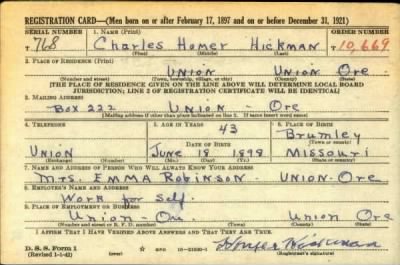 REGISTRATION CARD—(Men born on or after February 17, 1897 and on or before December 31, 1921)
SERIAL NUMBER 1. NAME (Print) ORDER NUMBER
T 768 Charles Homer Hickman T 10,669
(First) (Middle) (Last)
2. PLACE OF RESIDENCE (Print)
Union Union Ore
(Number and street) (Town, township, village, or city) (County) (State)
[THE PLACE OF RESIDENCE GIVEN ON THE LINE ABOVE WILL DETERMINE LOCAL BOARD
JURISDICTION; LINE 2 OF REGISTRATION CERTIFICATE WILL BE IDENTICAL]
3. MAILING ADDRESS
Box 222 Union - Ore
[Mailing address if other than place indicated on line 2. If same insert word same]
4. TELEPHONE 5. AGE IN YEARS 6. PLACE OF BIRTH
43 Brumley
DATE OF BIRTH (Town or county)
Union June 18 1898 Missouri
(Exchange) (Number) (Mo.) (Day) (Yr.) (State or country)
7. NAME AND ADDRESS OF PERSON WHO WILL ALWAYS KNOW YOUR ADDRESS
Mrs. EMMA Robinson - UNION-Ore
8. EMPLOYER'S NAME AND ADDRESS
Work for Self.
9. PLACE OF EMPLOYMENT OR BUSINESS
Union-Ore Union Ore
(Number and street or R. F. D. number) (Town) (County) (State)
I AFFIRM THAT I HAVE VERIFIED ABOVE ANSWERS AND THAT THEY ARE TRUE.
D. S. S. Form 1
(Revised 1-1-42) GPO Homer Hickman
(Registrant's signature)